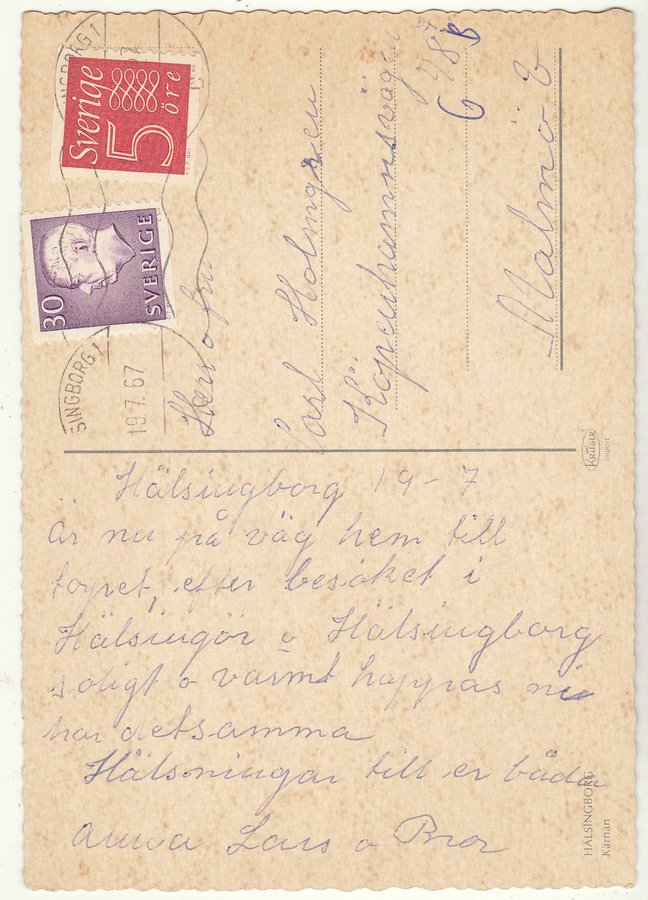 Hälsingborg 19-7
Är nu på väg hem till
torpet, efter besöket i
Hälsingör o Hälsingborg
soligt o varmt hoppas ni
har detsamma
Hälsningar till er båda
Anna Lars o Bror
Herr o fru
Carl Holmgren
Köpenhamnsvägen
Malmö
Sverige
5 öre
30
SVERIGE
SINGBORG 1
19.7.67
KRÜGER
Import
HÄLSINGBORG
Kärnan